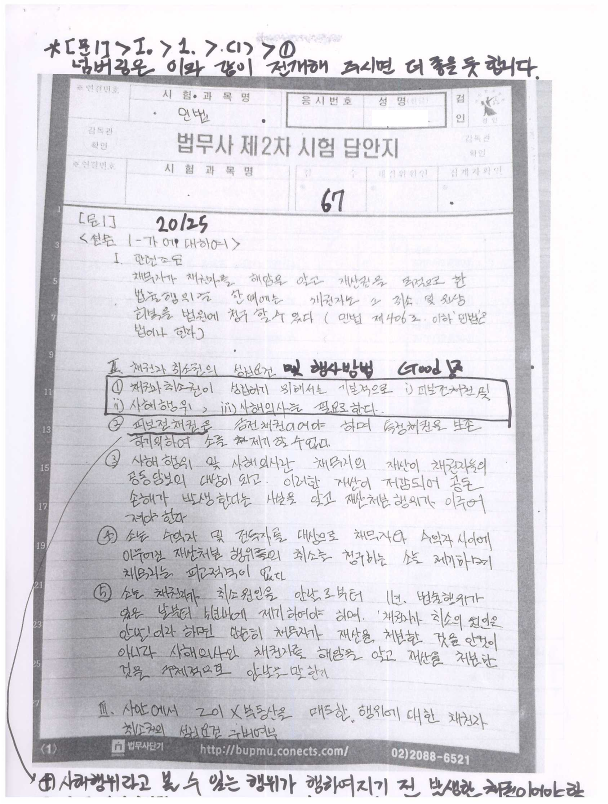 * [문1] > I. > 1. > (1) > ①
넘버링은 이와 같이 전개해 주시면 더 좋을 듯 합니다.
※연결번호
시험·과목명
민법
응시번호
성명
검
인
감독관
확인
법무사 제2차 시험 답안지
감독관
확인
※연결번호
시험과목명
점수
채점위원인
집계자확인
67
[문1] 20/25
<설문 1-가에 대하여>
I. 관련조문
채무자가 채권자를 해함을 알고 재산권을 목적으로 한
법률행위를 한 때에는 채권자는 그 취소 및 원상
회복을 법원에 청구할 수 있다 (민법 제406조. 이하 민법은
법이라 한다)
II. 채권자 취소권의 성립요건 및 행사방법 Good
① 채권자취소권이 성립하기 위해서는 기본적으로 i) 피보전채권 및
ii) 사해행위, iii) 사해의사를 필요로 한다.
② 피보전채권은 금전채권이어야 하며 특정채권을 보존
하기 위하여 소를 제기할 수 없다.
③ 사해행위 및 사해의사란 채무자의 재산이 채권자들의
공동담보의 대상이 되고 이러한 재산이 저감되어 공동
손해가 발생한다는 사실을 알고 재산처분행위가 이루어
져야 한다
④ 소는 수익자 및 전득자를 대상으로 채무자와 수익자 사이에
이루어진 재산처분 행위등의 취소를 청구하는 소를 제기하며
채무자는 피고적격이 없다
⑤ 소는 채권자가 취소원인을 안 날로부터 1년, 법률행위가
있은 날부터 5년내에 제기하여야 하며, '채권자가 취소의 원인을
안 날'이라 하면 단순히 채무자가 재산을 처분한 것을 안 것이
아니라 사해의사인 채권자를 해함을 알고 재산을 처분한
것을 구체적으로 안 날을 말한다
III. 사안에서 乙이 X부동산을 매도한 행위에 대한 채권자
취소권의 성립요건 구비여부
<1>
법무사단기
http://bupmu.conects.com/
02)2088-6521
+ 사해행위라고 볼 수 있는 행위가 행하여지기 전 발생한 채권이어야 함